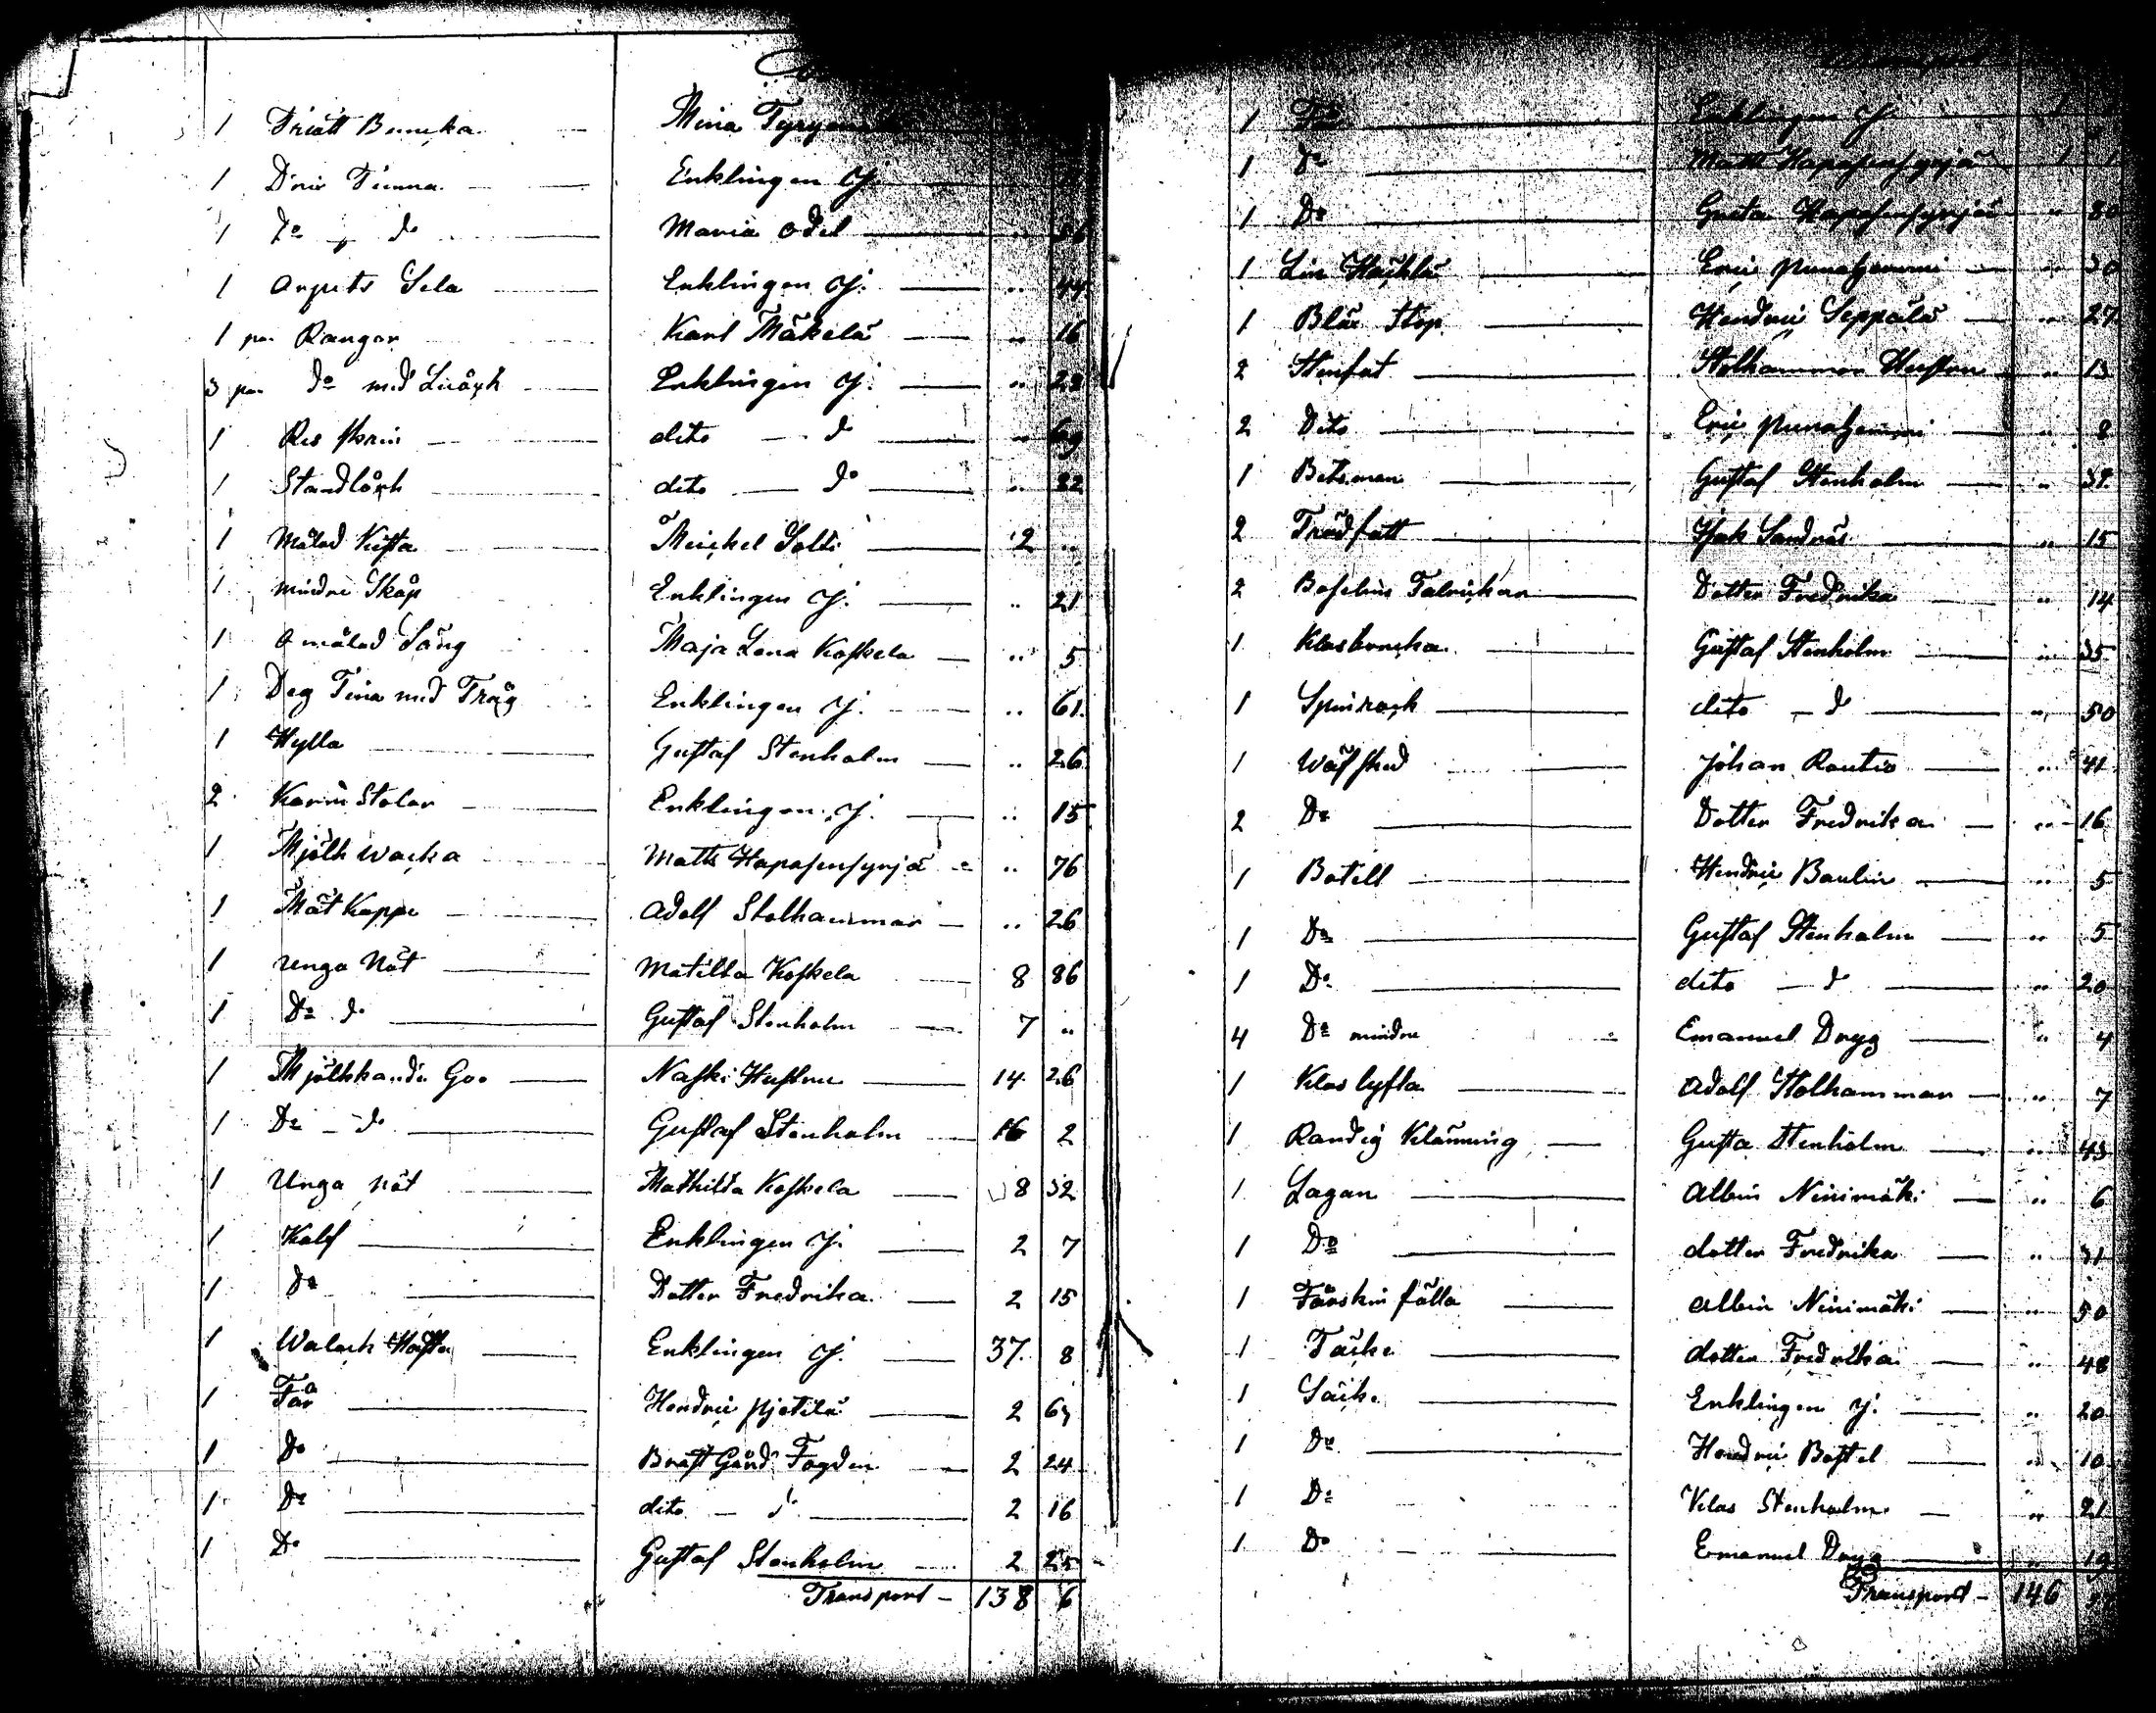 1 Driått Buncka Mina
1 Dric Tunna Enklingen Cj
1 Do " do Maria Odel 56
1 Arpets Sela Enklingen Cj. " 44
1 par Rangor Karl Mäkelä " 16
3 par do med Enklingen Cj. " 22
1 Res skrin dito do " 69
1 Standlåck dito do " 22
1 målad Kista Meickel Salli 2 "
1 mindre Skåp Enklingen Cj. " 21
1 omålad Säng Maja Lena Koskela " 5
1 Deg Tina med Tråg Enklingen Cj. " 61
1 Hylla Gustaf Stenholm " 26
2 Karin Stolar Enklingen Cj. " 15
1 Mjölk wacka Matts Hapasensyrjä " 76
1 Måt Kappe Adolf Stolhammar " 26
1 Unga Nöt Matilda Koskela 8 86
1 Do do Gustaf Stenholm 7 "
1 Mjölkkande Goo Naski Hustru 14 26
1 Do do Gustaf Stenholm 16 2
1 Unga nöt Mathilda Koskela 8 32
1 Kalf Enklingen Cj. 2 7
1 Do Dotter Fredrika 2 15
1 Walack Hästen Enklingen Cj. 37 8
1 Får Hendric Pjetilä 2 67
1 Do Brastgård Fogden 2 24
1 Do dito do 2 16
1 Do Gustaf Stenholm 2 25
Transport 138 6
1 Får Enklingen Cj. 1
1 do Matts Hapasensyrjä 1 1
1 Do Greta Hapasensyrjä " 80
1 Lin Häckla Eric Punahammi " 30
1 Blåe Stop Hendric Seppälä " 27
2 Stenfat Stolhammar Hustru " 13
2 Dito Eric Punahammi " 8
1 Betsman Gustaf Stenholm " 38
2 Trädfatt Isak Sandnäs " 15
2 Boselins Talrickar Dotter Fredrika " 14
1 Klasbuncka Gustaf Stenholm " 35
1 Spinrock dito do " 50
1 Wäfsked Johan Rautio " 41
2 Do Dotter Fredrika " 16
1 Botell Hendric Baulin " 5
1 Do Gustaf Stenholm " 5
1 Do dito do " 20
4 Do mindre Emanuel Dryg " 4
1 Klas lyfta Adolf Stolhammar " 7
1 Randig Klänning Gusta Stenholm " 43
1 Lagan Albin Ninimäki " 6
1 Do dotter Fredrika " 31
1 Fårskin fälla Albin Ninimäki " 50
1 Täcke dotter Fredrika " 48
1 Säck Enklingen Cj. " 20
1 Do Hendric Bostel " 10
1 Do Klas Stenholm " 21
1 Do Emanuel Dryg " 19
Transport 146